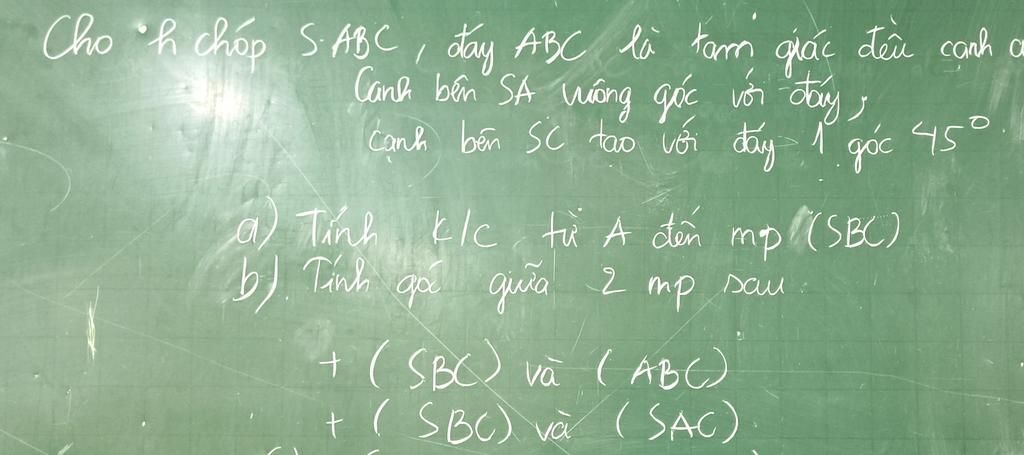 Cho h chóp S.ABC, đáy ABC là tam giác đều cạnh a
Cạnh bên SA vuông góc với đáy,
cạnh bên SC tạo với đáy 1 góc 45°
a) Tính k/c từ A đến mp (SBC)
b) Tính góc giữa 2 mp sau
+ (SBC) và (ABC)
+ (SBC) và (SAC)